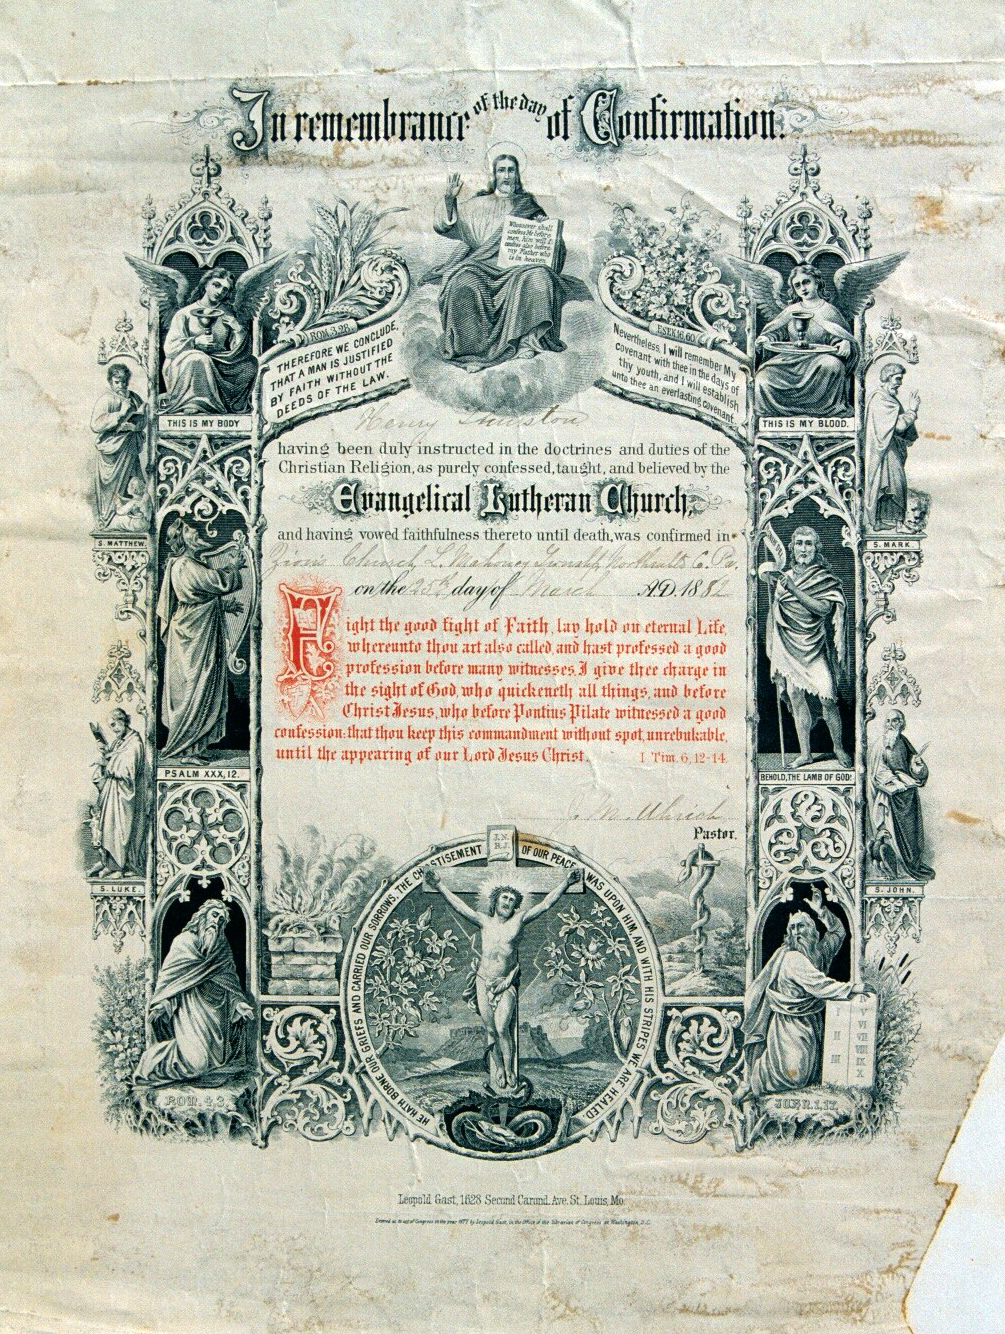 In remembrance of the day of Confirmation.
Whosoever shall
confess Me before
men, him will I
confess also before
my Father who
is in heaven.
ROM. 3,28.
THEREFORE WE CONCLUDE,
THAT A MAN IS JUSTIFIED
BY FAITH WITHOUT THE
DEEDS OF THE LAW.
EZEK. 16,60.
Nevertheless, I will remember My
covenant with thee in the days of
thy youth, and I will establish
unto thee an everlasting covenant.
THIS IS MY BODY
THIS IS MY BLOOD.
Henry
having been duly instructed in the doctrines and duties of the
Christian Religion, as purely confessed, taught, and believed by the
Evangelical Lutheran Church,
and having vowed faithfulness thereto until death, was confirmed in
Zion's Church, L. Mahoney Township, Northumb. C. Pa.
on the 25th day of March A.D. 1881
S. MATTHEW.
S. MARK.
Fight the good fight of Faith, lay hold on eternal Life,
whereunto thou art also called, and hast professed a good
profession before many witnesses. I give thee charge in
the sight of God, who quickeneth all things, and before
Christ Jesus, who before Pontius Pilate witnessed a good
confession: that thou keep this commandment without spot, unrebukable,
until the appearing of our Lord Jesus Christ. I Tim. 6, 12-14.
PSALM XXX, 12.
BEHOLD, THE LAMB OF GOD!
J. M. Uhrich
Pastor.
I.N.
R.I.
HE HATH BORNE OUR GRIEFS AND CARRIED OUR SORROWS, THE CHASTISEMENT OF OUR PEACE WAS UPON HIM, AND WITH HIS STRIPES WE ARE HEALED.
S. LUKE.
S. JOHN.
I V
VI
II VII
VIII
III IX
X
ROM. 4,3.
JOHN. 1,17.
Leopold Gast, 1628 Second Carond. Ave. St. Louis, Mo.
Entered acc. to act of Congress in the year 1877 by Leopold Gast, in the Office of the Librarian of Congress at Washington, D.C.